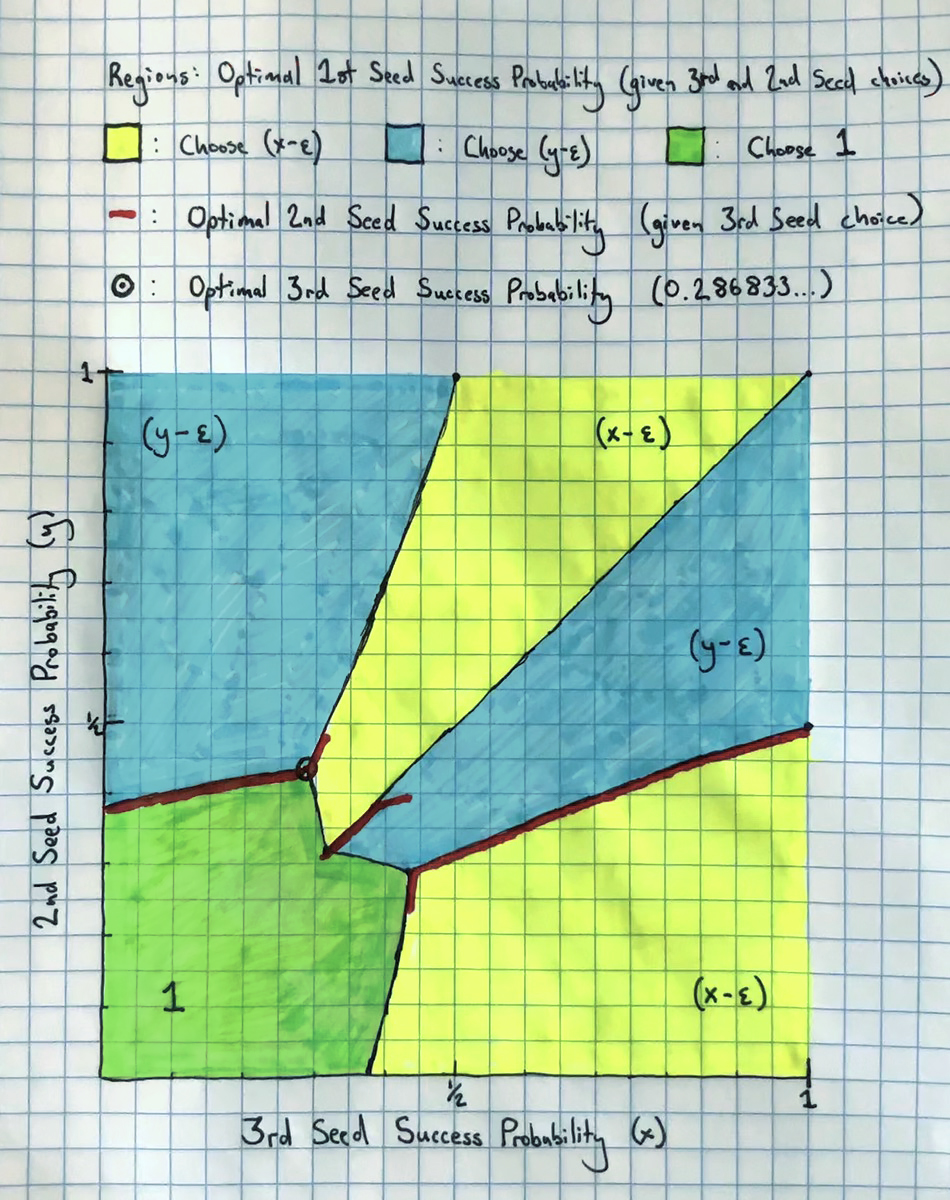 Regions: Optimal 1st Seed Success Probability (given 3rd and 2nd Seed choices)
: Choose (x-ε) : Choose (y-ε) : Choose 1
: Optimal 2nd Seed Success Probability (given 3rd Seed choice)
: Optimal 3rd Seed Success Probability (0.286833...)
1
(y-ε) (x-ε)
2nd Seed Success Probability (y)
(y-ε)
½
1 (x-ε)
½ 1
3rd Seed Success Probability (x)